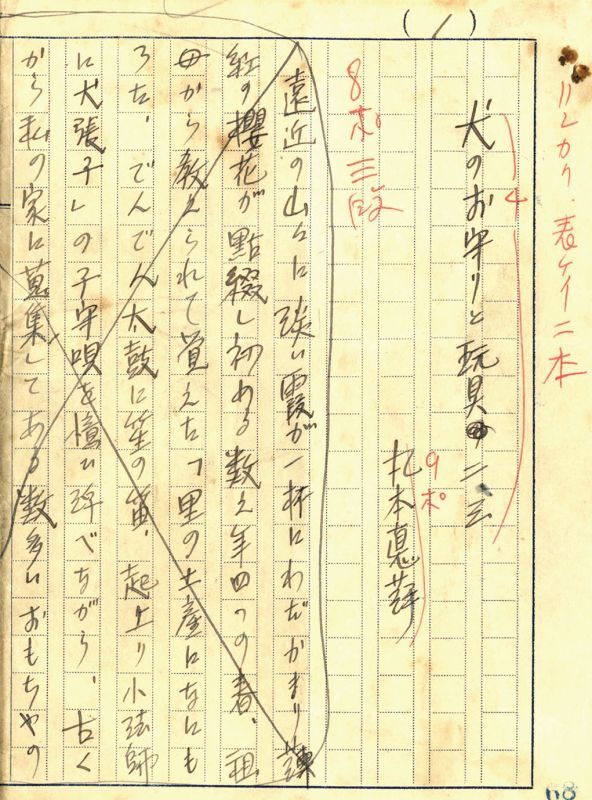 (1)
ハシカケ、表ケイ二本
4
犬のお守りと玩具の二三
9ポ
札本恵蕣
8ポ三段
遠近の山々に淡い霞が一杯にわだかまり薄
紅の櫻花が點綴し初める数え年四つの春、祖
母から教えられて覚えた「里の土産になにも
ろた、でんでん太鼓に笙の笛、起上り小法師
に犬張子」の子守唄を憶い浮べながら、古く
から私の家に蒐集してある数多いおもちゃの
118